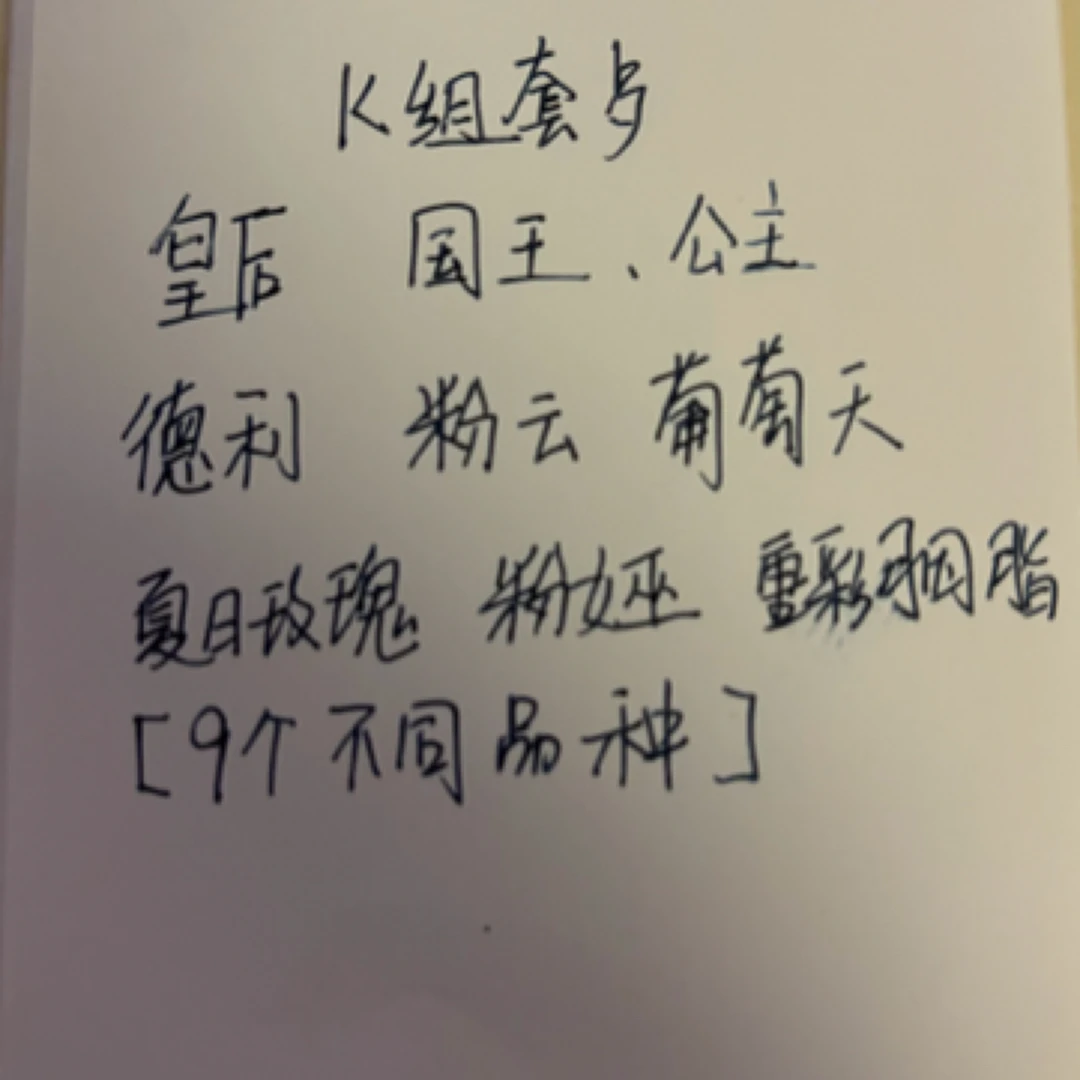 K组套
皇后 国王、公主
德利 粉云 葡萄天
夏日玫瑰 粉娅 重彩胭脂
[9个不同品种]